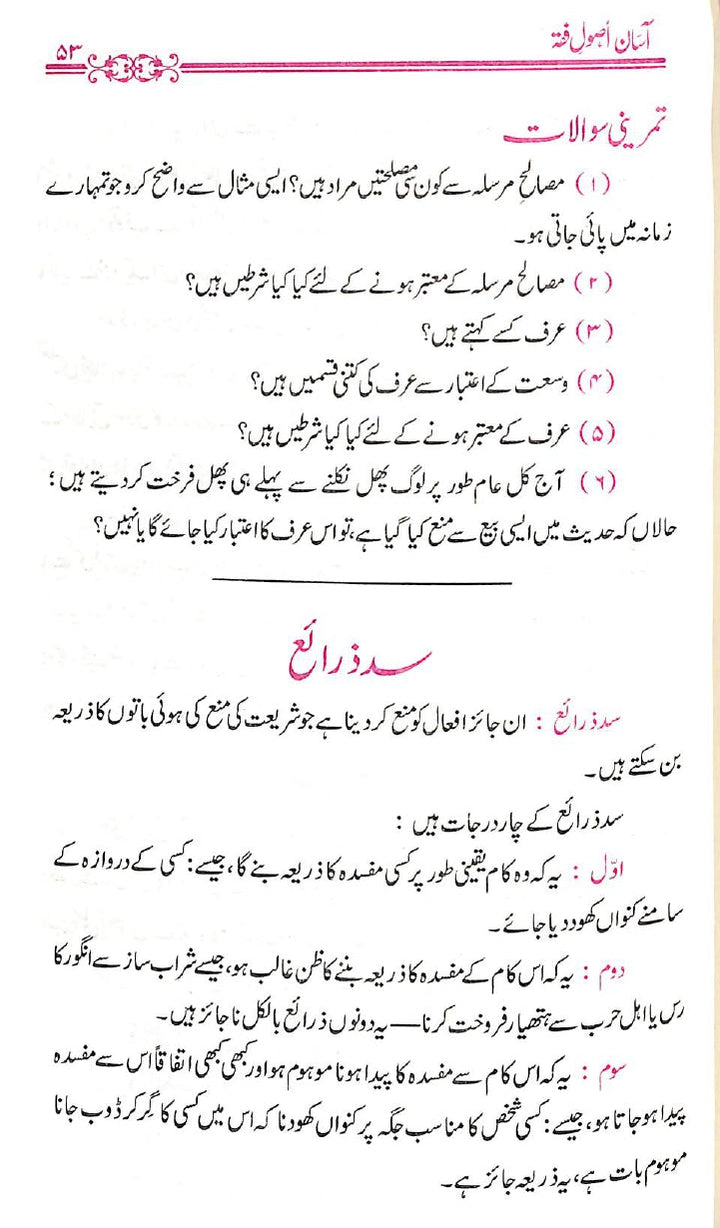 آسان اُصولِ فقہ
۵۳
تمرینی سوالات
(۱) مصالحِ مرسلہ سے کون سی مصلحتیں مراد ہیں؟ ایسی مثال سے واضح کرو جو تمہارے
زمانہ میں پائی جاتی ہو۔
(۲) مصالحِ مرسلہ کے معتبر ہونے کے لئے کیا کیا شرطیں ہیں؟
(۳) عرف کسے کہتے ہیں؟
(۴) وسعت کے اعتبار سے عرف کی کتنی قسمیں ہیں؟
(۵) عرف کے معتبر ہونے کے لئے کیا کیا شرطیں ہیں؟
(۶) آج کل عام طور پر لوگ پھل نکلنے سے پہلے ہی پھل فرخت کر دیتے ہیں؛
حالاں کہ حدیث میں ایسی بیع سے منع کیا گیا ہے، تو اس عرف کا اعتبار کیا جائے گا یا نہیں؟
سد ذرائع
سد ذرائع : ان جائز افعال کو منع کر دینا ہے جو شریعت کی منع کی ہوئی باتوں کا ذریعہ
بن سکتے ہیں۔
سد ذرائع کے چار درجات ہیں :
اوّل : یہ کہ وہ کام یقینی طور پر کسی مفسدہ کا ذریعہ بنے گا، جیسے: کسی کے دروازہ کے
سامنے کنواں کھود دیا جائے۔
دوم : یہ کہ اس کام کے مفسدہ کا ذریعہ بننے کا ظن غالب ہو، جیسے شراب ساز سے انگور کا
رس یا اہل حرب سے ہتھیار فروخت کرنا — یہ دونوں ذرائع بالکل ناجائز ہیں۔
سوم : یہ کہ اس کام سے مفسدہ کا پیدا ہونا موہوم ہو اور کبھی کبھی اتفاقاً اس سے مفسدہ
پیدا ہو جاتا ہو، جیسے: کسی شخص کا مناسب جگہ پر کنواں کھودنا کہ اس میں کسی کا گِر کر ڈوب جانا
موہوم بات ہے، یہ ذریعہ جائز ہے۔